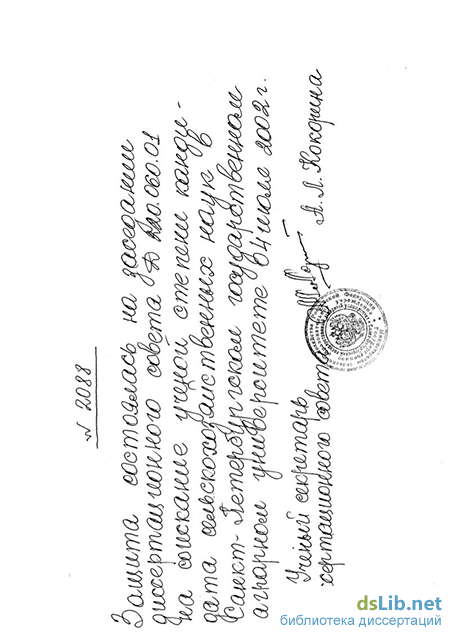 № 2088
Защита состоялась на заседании
диссертационного совета Д 220.060.01
на соискание ученой степени канди-
дата сельскохозяйственных наук
Санкт-Петербургском государственном
аграрном университете 04 июле 2002 г.
Ученый секретарь
сертационного совета А.Л. Кокорина
dsLib.net
библиотека диссертаций